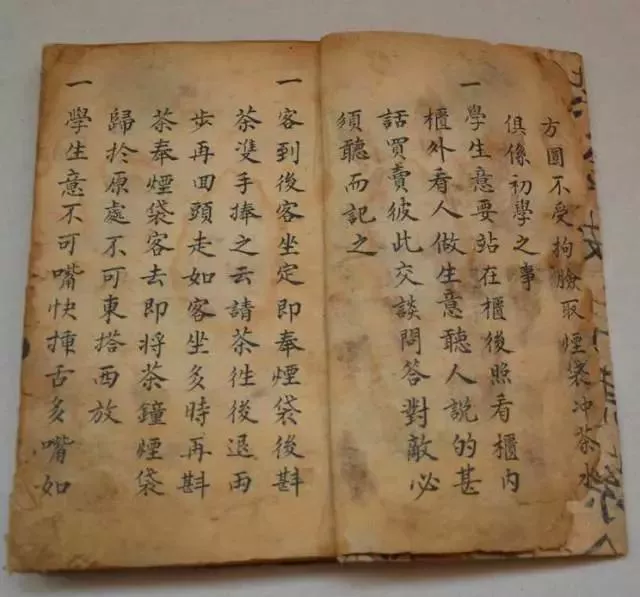 方圓不受拘臉取煙袋冲茶水
俱係初學之事
一學生意要站在櫃後照看櫃內
櫃外看人做生意聽人說的甚
話買賣彼此交談問答對敵必
須聽而記之
一客到後客坐定即奉煙袋後斟
茶雙手捧之云請茶徃後退両
步再回頭走如客坐多時再斟
茶奉煙袋客去即将茶鐘煙袋
歸於原處不可東搭西放
一學生意不可嘴快揷舌多嘴如